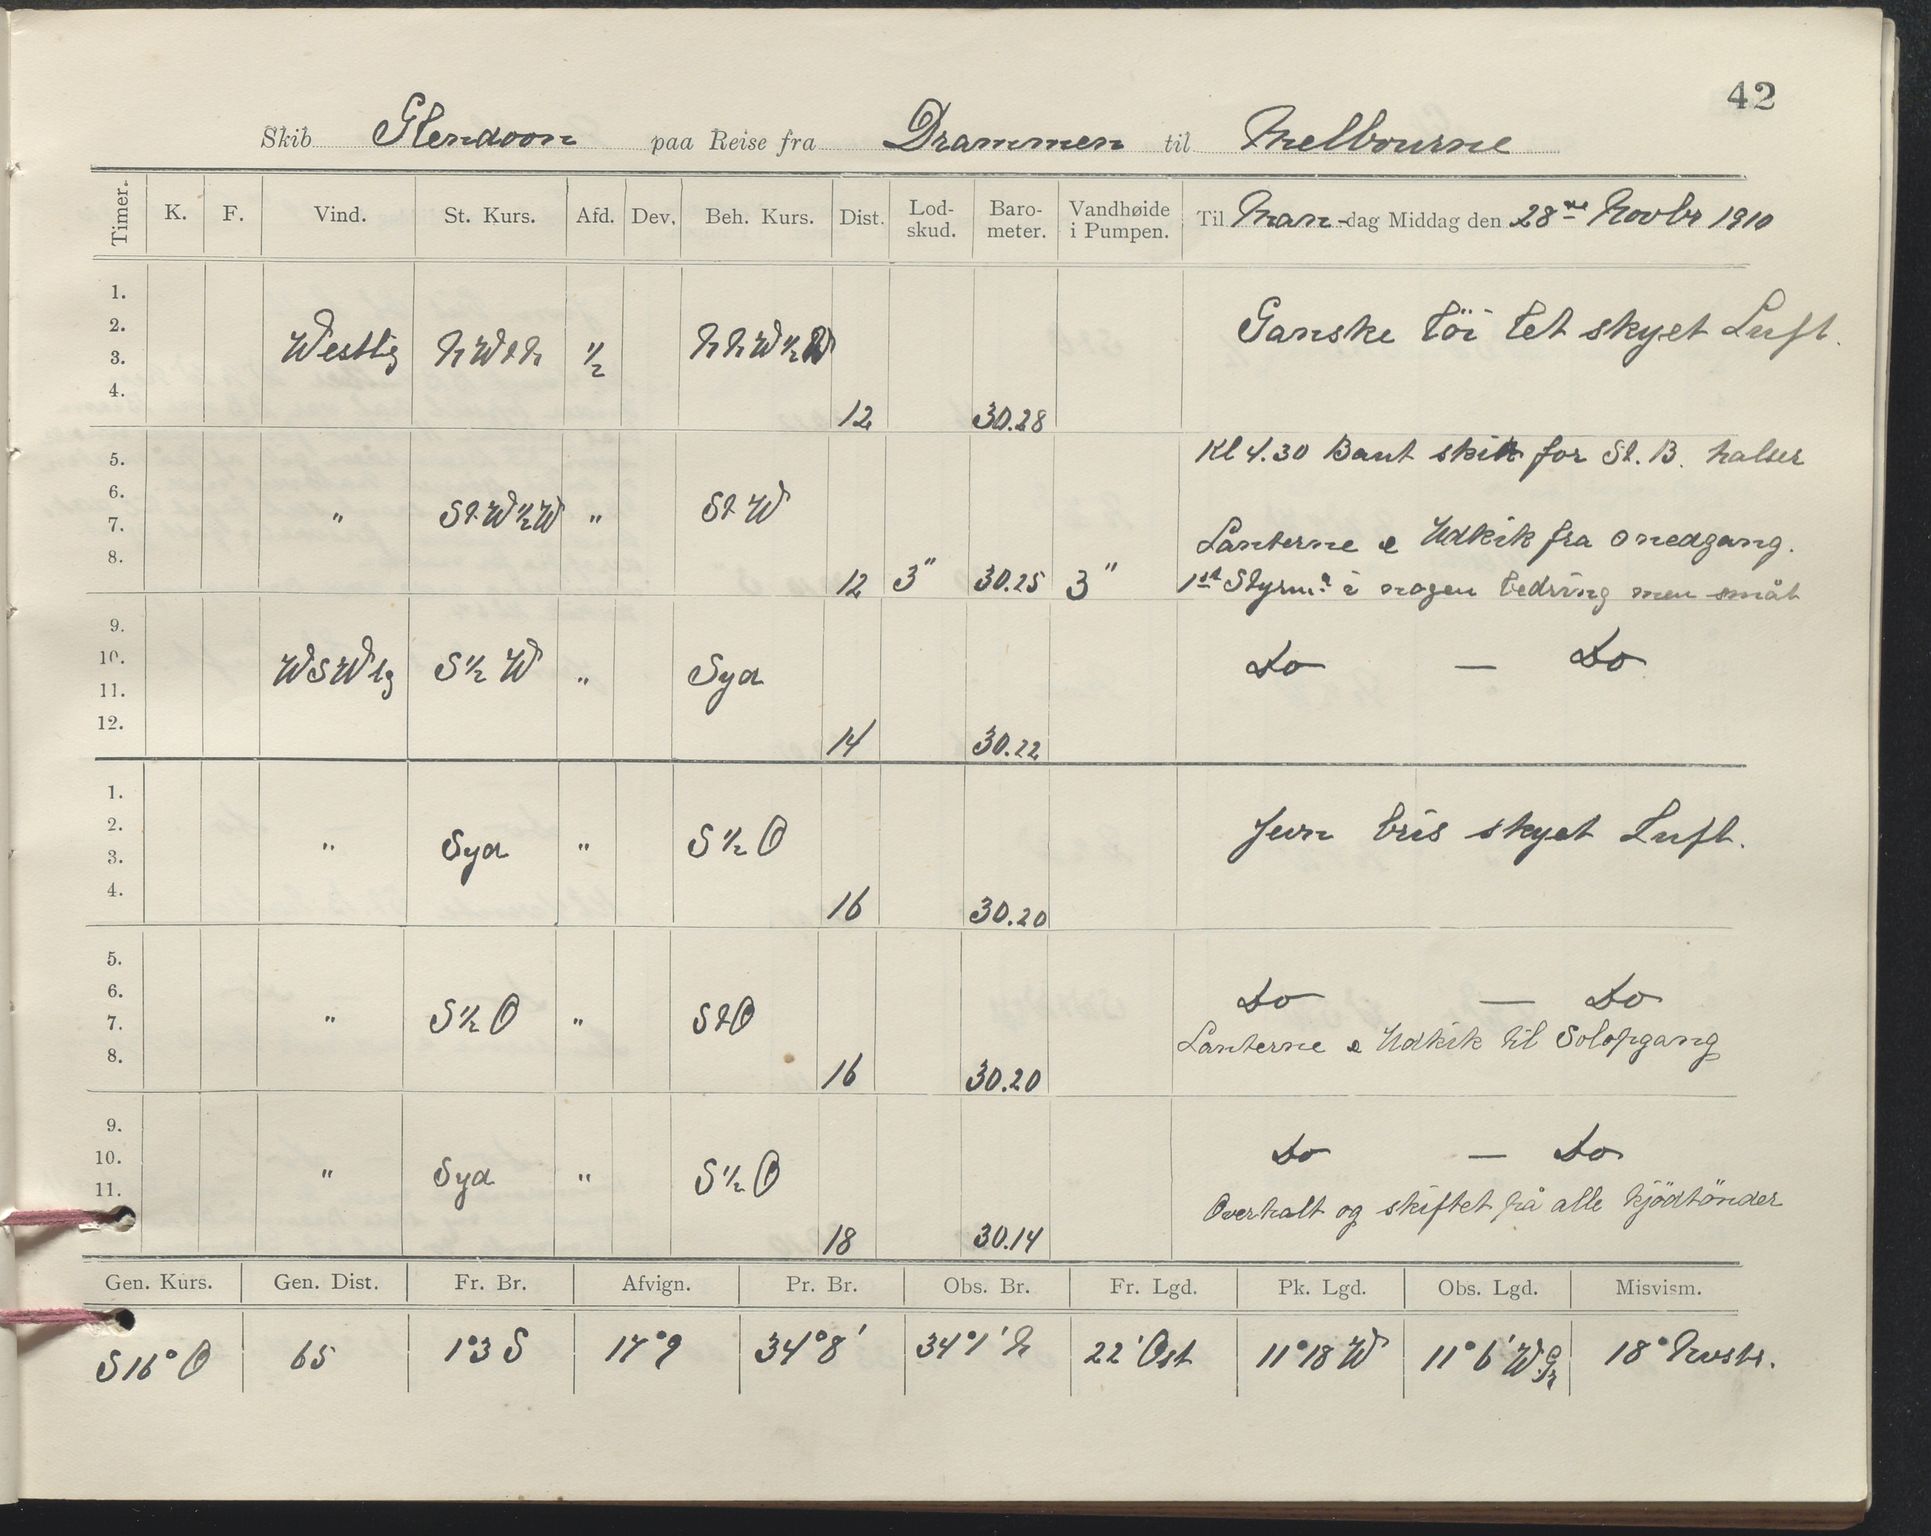 42
Skib Glendoon paa Reise fra Drammen til Melbourne
Timer. K. F. Vind. St. Kurs. Afd. Dev. Beh. Kurs. Dist. Lod-skud. Baro-meter. Vandhøide i Pumpen. Til Man-dag Middag den 28de Novbr 1910
1.
2. Ganske löi let skyet Luft.
3. Westlig NWtN ½ NNW½W
4. 12 30.28
5. Kl 4.30 Baut skib for St. B. halser
6.
7. " StW½W " StW Lanterne & Udkik fra onedgang.
8. 12 3" 30.25 3" 1st Styrmn i nogen bedring men småt
9.
10. WSWlg S½W " Syd Do — Do
11.
12. 14 30.22
1.
2. " Syd " S½O Jevn bris skyet Luft.
3.
4. 16 30.20
5.
6. Do — Do
7. " S½O " StO Lanterne & Udkik til Solopgang
8. 16 30.20
9.
10. " Syd " S½O Do — Do
11. Overhalt og skiftet på alle kjödtönder
18 30.14
Gen. Kurs. Gen. Dist. Fr. Br. Afvign. Pr. Br. Obs. Br. Fr. Lgd. Pk. Lgd. Obs. Lgd. Misvism.
S16°O 65 1°3 S 17°9 34°8' 34°1' N 22' Ost 11°18 W 11°6' W Gr 18°